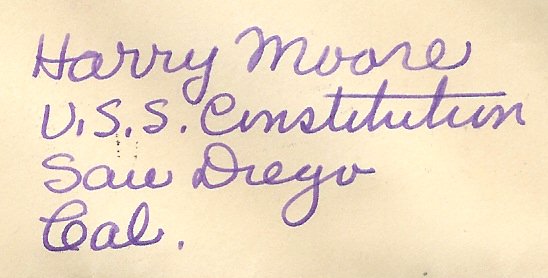 Harry Moore
U.S.S. Constitution
San Diego
Cal.